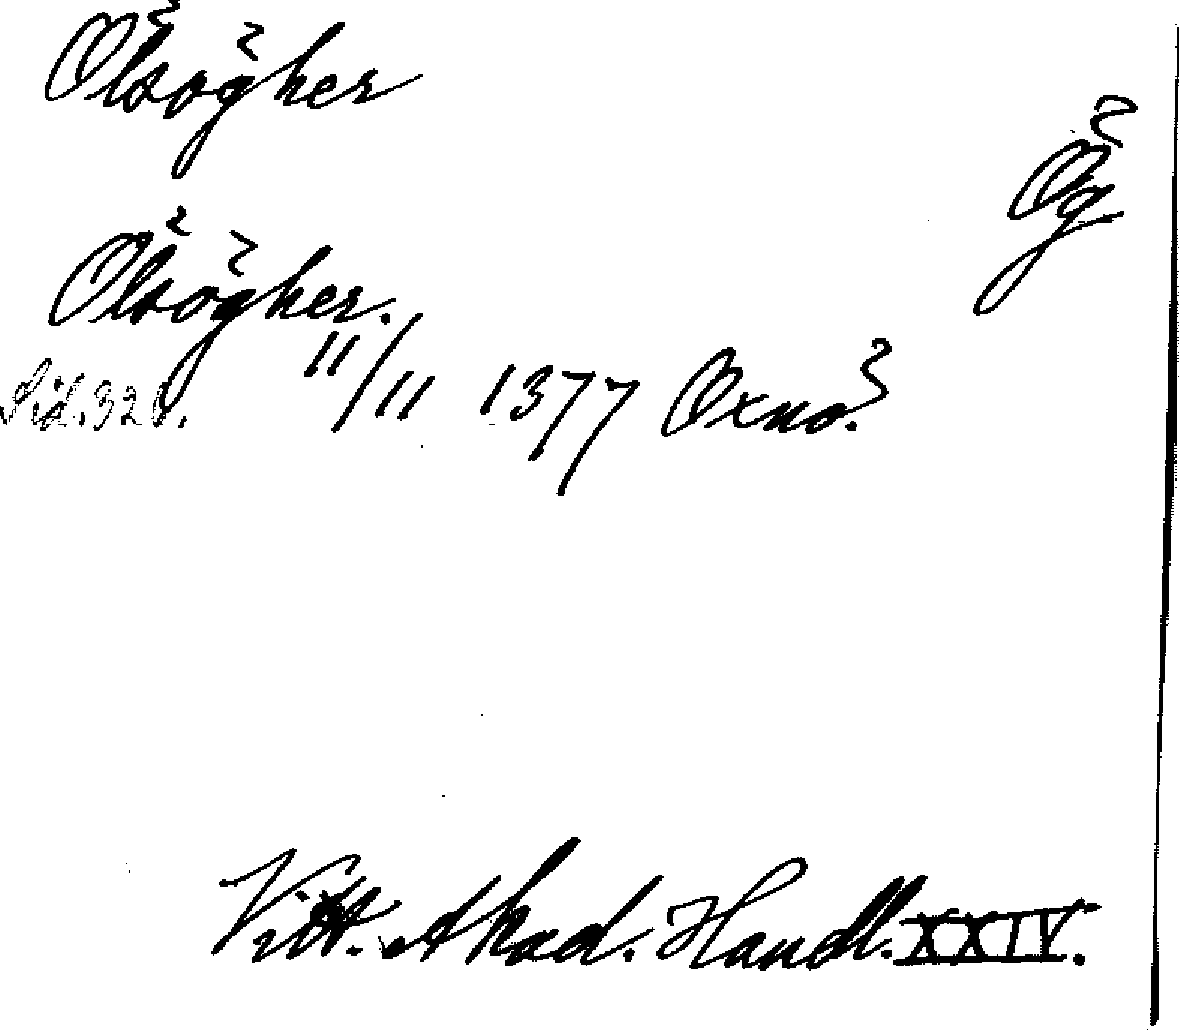 Ölsögher
Ög
Ölsögher.
Sid. 326. 11/11 1377 Oxnö.
Vitt. Akad. Handl. XXIV.